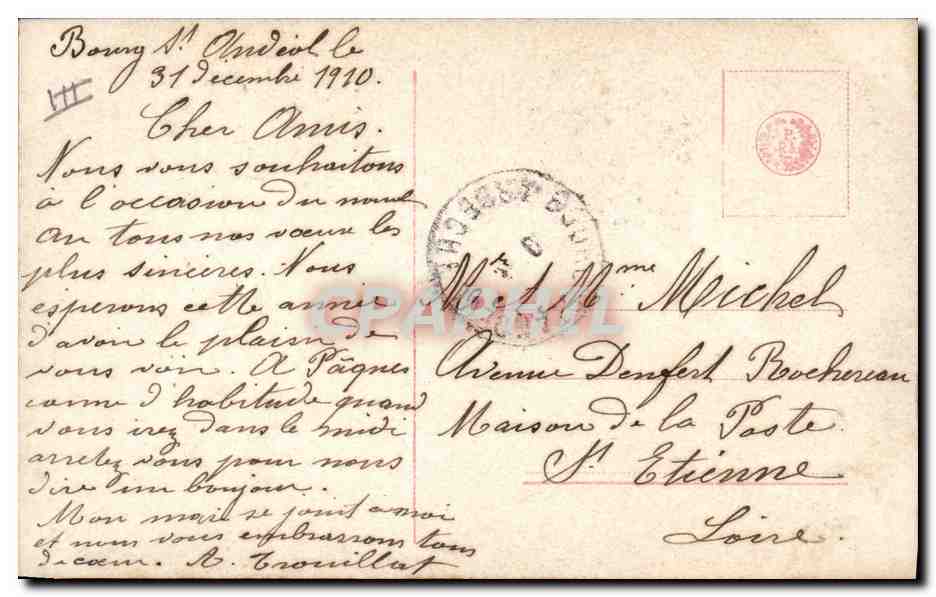 Bourg St Andéol le
31 decembre 1910.
III
Cher Amis.
Nous vous souhaitons
à l'occasion du nouvel
an tous nos vœux les
plus sincères. Nous
esperons cette année
d'avoir le plaisir de
vous voir. A Pâques
comme d'habitude quand
vous irez dans le midi
arretez vous pour nous
dire un bonjour.
Mon mari se joint a moi
et nous vous embrassons tous
de cœur. A. Trouillat
Mr et Mme Michel
Avenue Denfert Rochereau
Maison de la Poste
St Etienne
Loire.
CPAPHIL